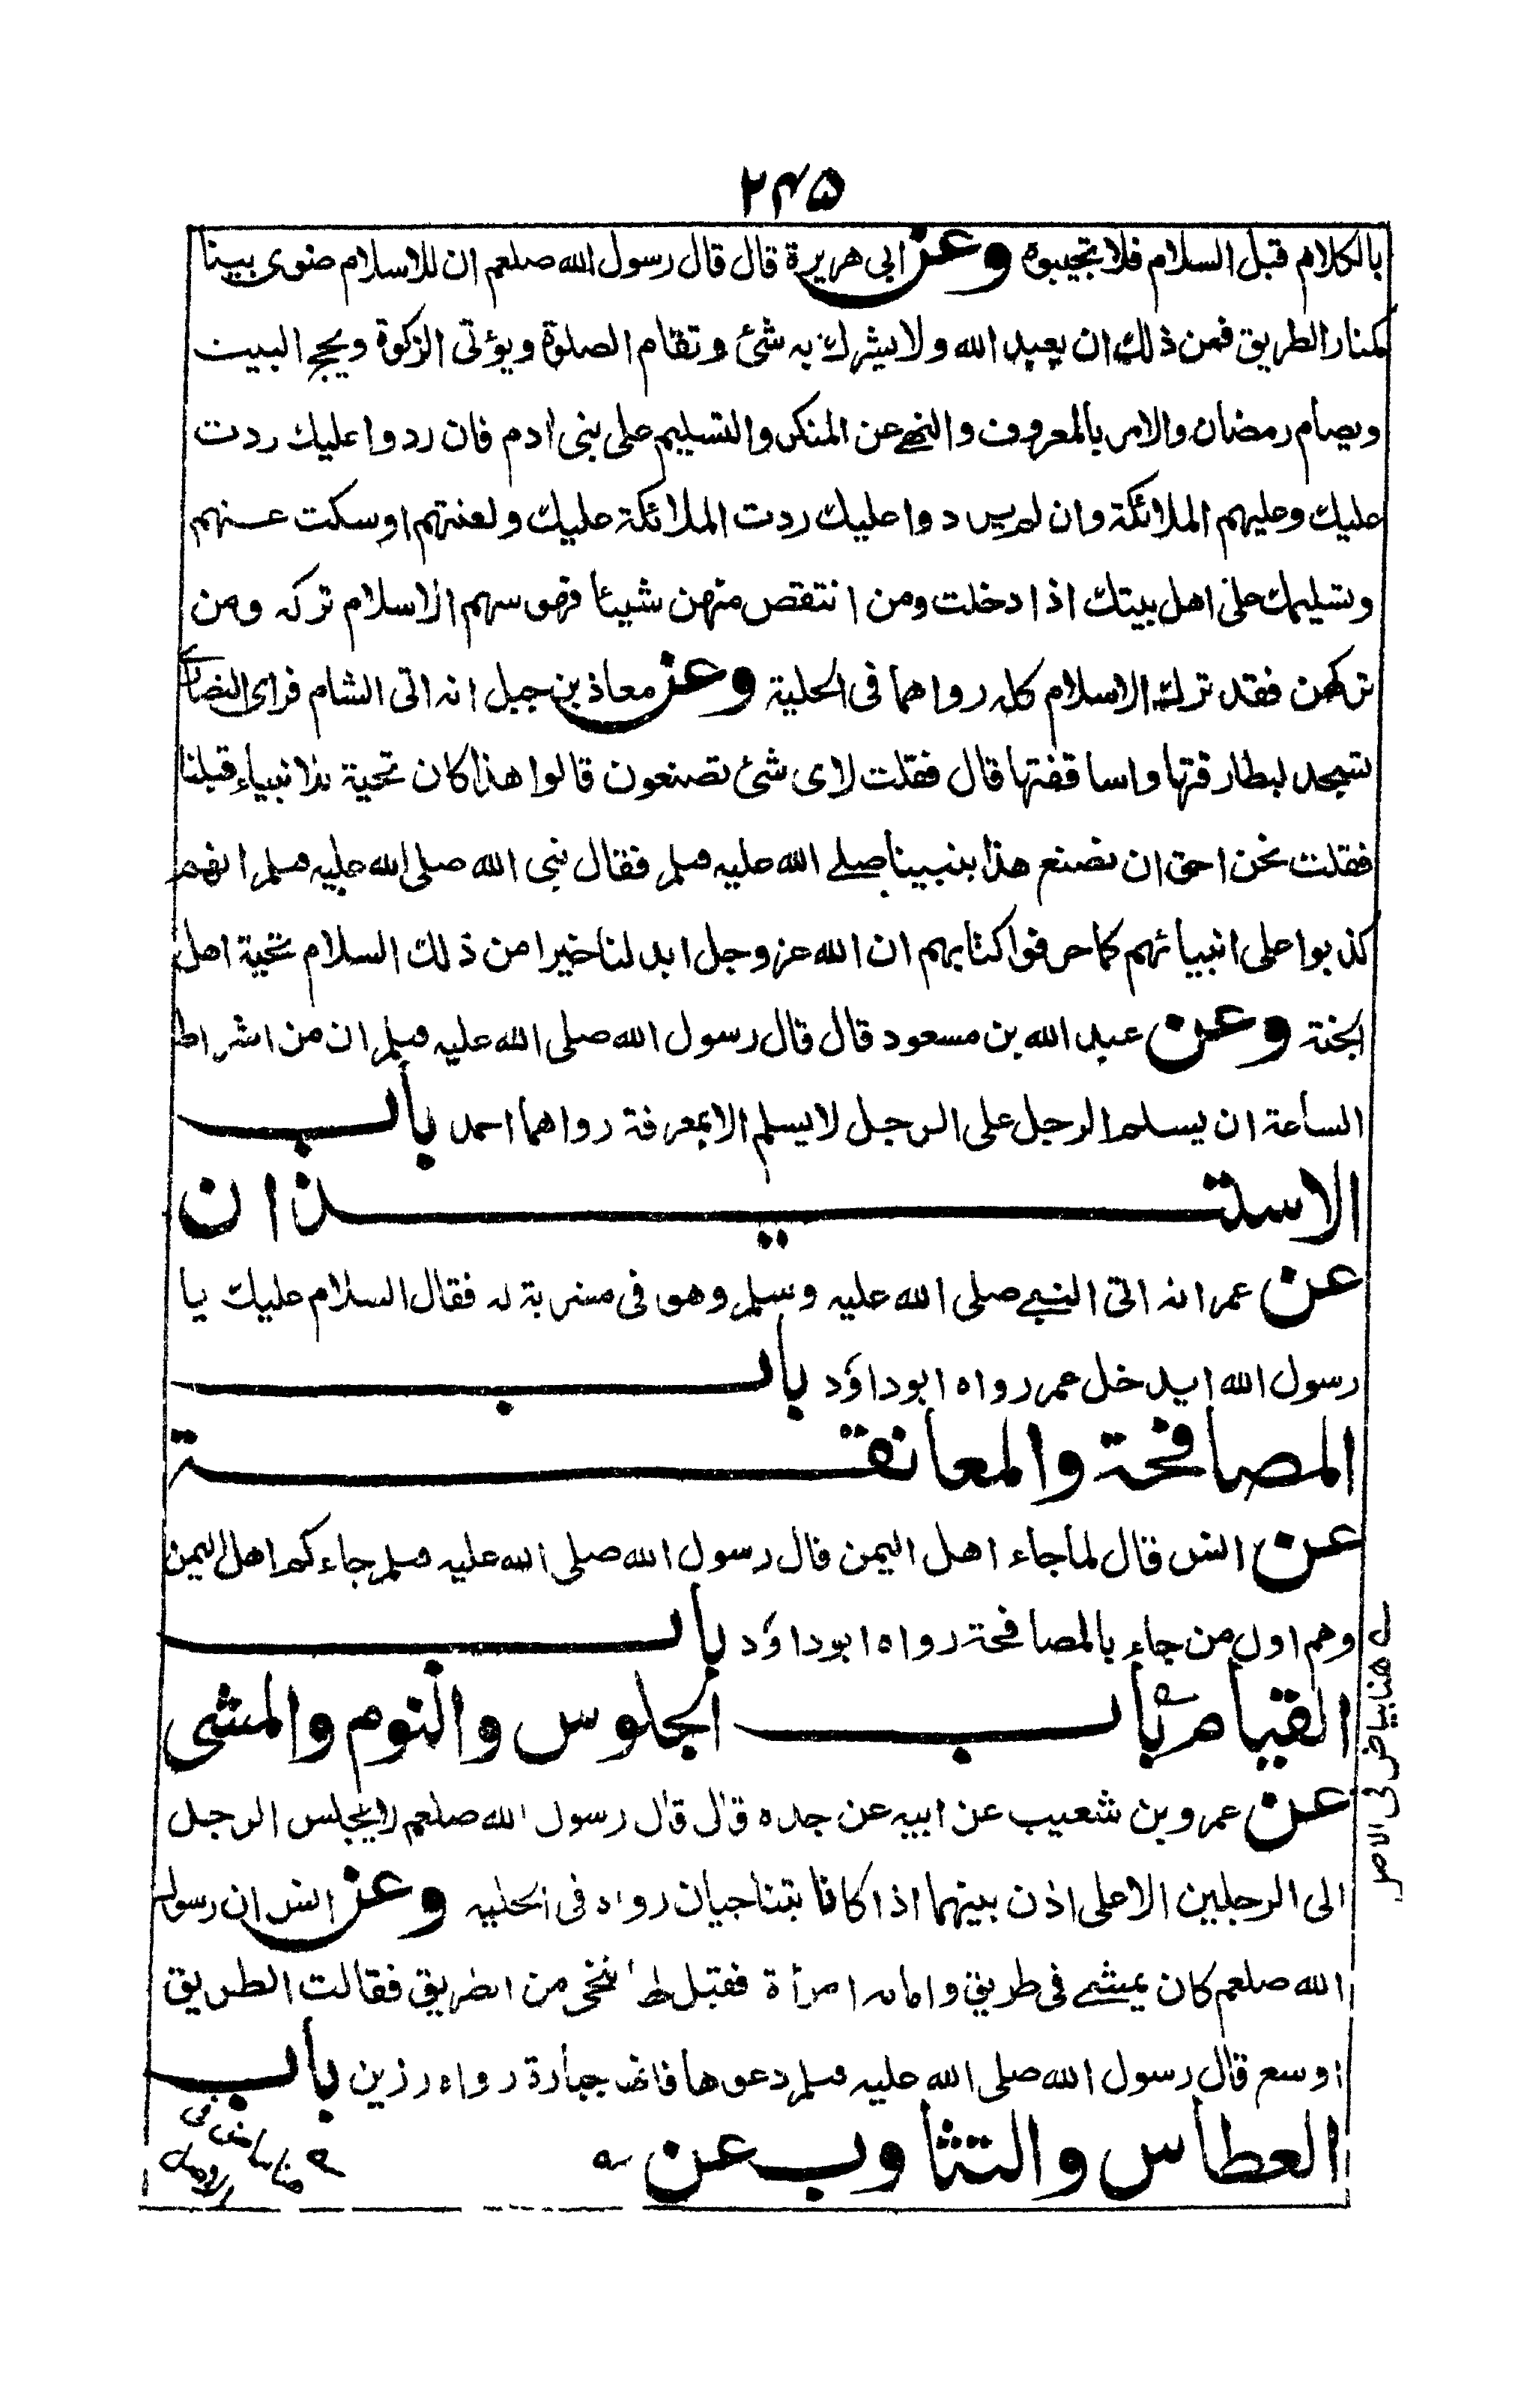 ٢٤٥
بالكلام قبل السلام فلا تجيبوه وعن ابى هريرة قال قال رسول الله صلعم ان للاسلام ضوى بينا
كمنار الطريق فمن ذلك ان يعبد الله ولا يشرك به شئ وتقام الصلوة ويؤتى الزكوة ويحج البيت
ويصام رمضان والامر بالمعروف والنهى عن المنكر والتسليم على بنى ادم فان ردوا عليك ردت
عليك وعليهم الملائكة وان لم يردوا عليك ردت الملائكة عليك ولعنتهم او سكت عنهم
وتسليمك على اهل بيتك اذا دخلت ومن انتقص منهن شيئا فهو سهم الاسلام تركه ومن
تركهن فقد ترك الاسلام كله رواهما فى الحلية وعن معاذ بن جبل انه اتى الشام فراى النصارى
تسجد لبطارقتها واساقفتها قال فقلت لاى شئ تصنعون قالوا هذا كان تحية للانبياء قبلنا
فقلت نحن احق ان نصنع هذا بنبينا صلى الله عليه وسلم فقال نبى الله صلى الله عليه وسلم انهم
كذبوا على انبيائهم كما حرفوا كتابهم ان الله عز وجل ابدلنا خيرا من ذلك السلام تحية اهل
الجنة وعن عبد الله بن مسعود قال قال رسول الله صلى الله عليه وسلم ان من اشراط
الساعة ان يسلم الرجل على الرجل لا يسلم الا بمعرفة رواهما احمد باب
الاستيذان
عن عمر انه اتى النبى صلى الله عليه وسلم وهو فى مشربة له فقال السلام عليك يا
رسول الله ايدخل عمر رواه ابو داؤد باب
المصافحة والمعانقة
عن انس قال لما جاء اهل اليمن قال رسول الله صلى الله عليه وسلم جاءكم اهل اليمن
وهم اول من جاء بالمصافحة رواه ابو داؤد باب
القيام باب الجلوس والنوم والمشى
هنا بياض فى الاصل
عن عمرو بن شعيب عن ابيه عن جده قال قال رسول الله صلعم لا يجلس الرجل
الى الرجلين الا على اذن بينهما اذا كانا يتناجيان رواه فى الحلية وعن انس ان رسول
الله صلعم كان يمشى فى طريق وامامه امرأة فقيل لها تنحى من الطريق فقالت الطريق
اوسع قال رسول الله صلى الله عليه وسلم دعوها فانها جبارة رواه رزين باب
العطاس والتثاوب عن
هنا بياض فى الاصل